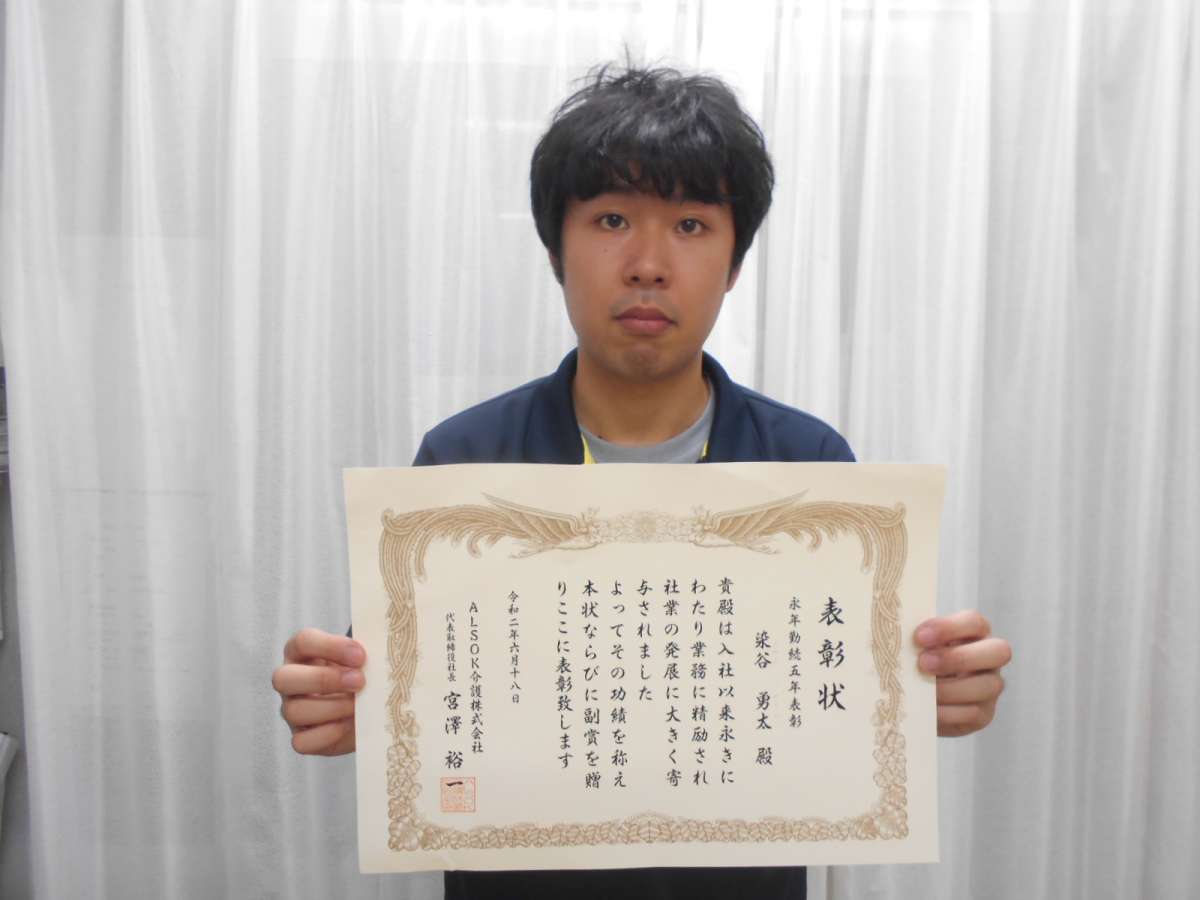 表彰状
永年勤続五年表彰
染谷 勇太 殿
貴殿は入社以来永きに
わたり業務に精励され
社業の発展に大きく寄
与されました
よってその功績を称え
本状ならびに副賞を贈
りここに表彰致します
令和二年六月十八日
ALSOK介護株式会社
代表取締役社長 宮澤 裕一